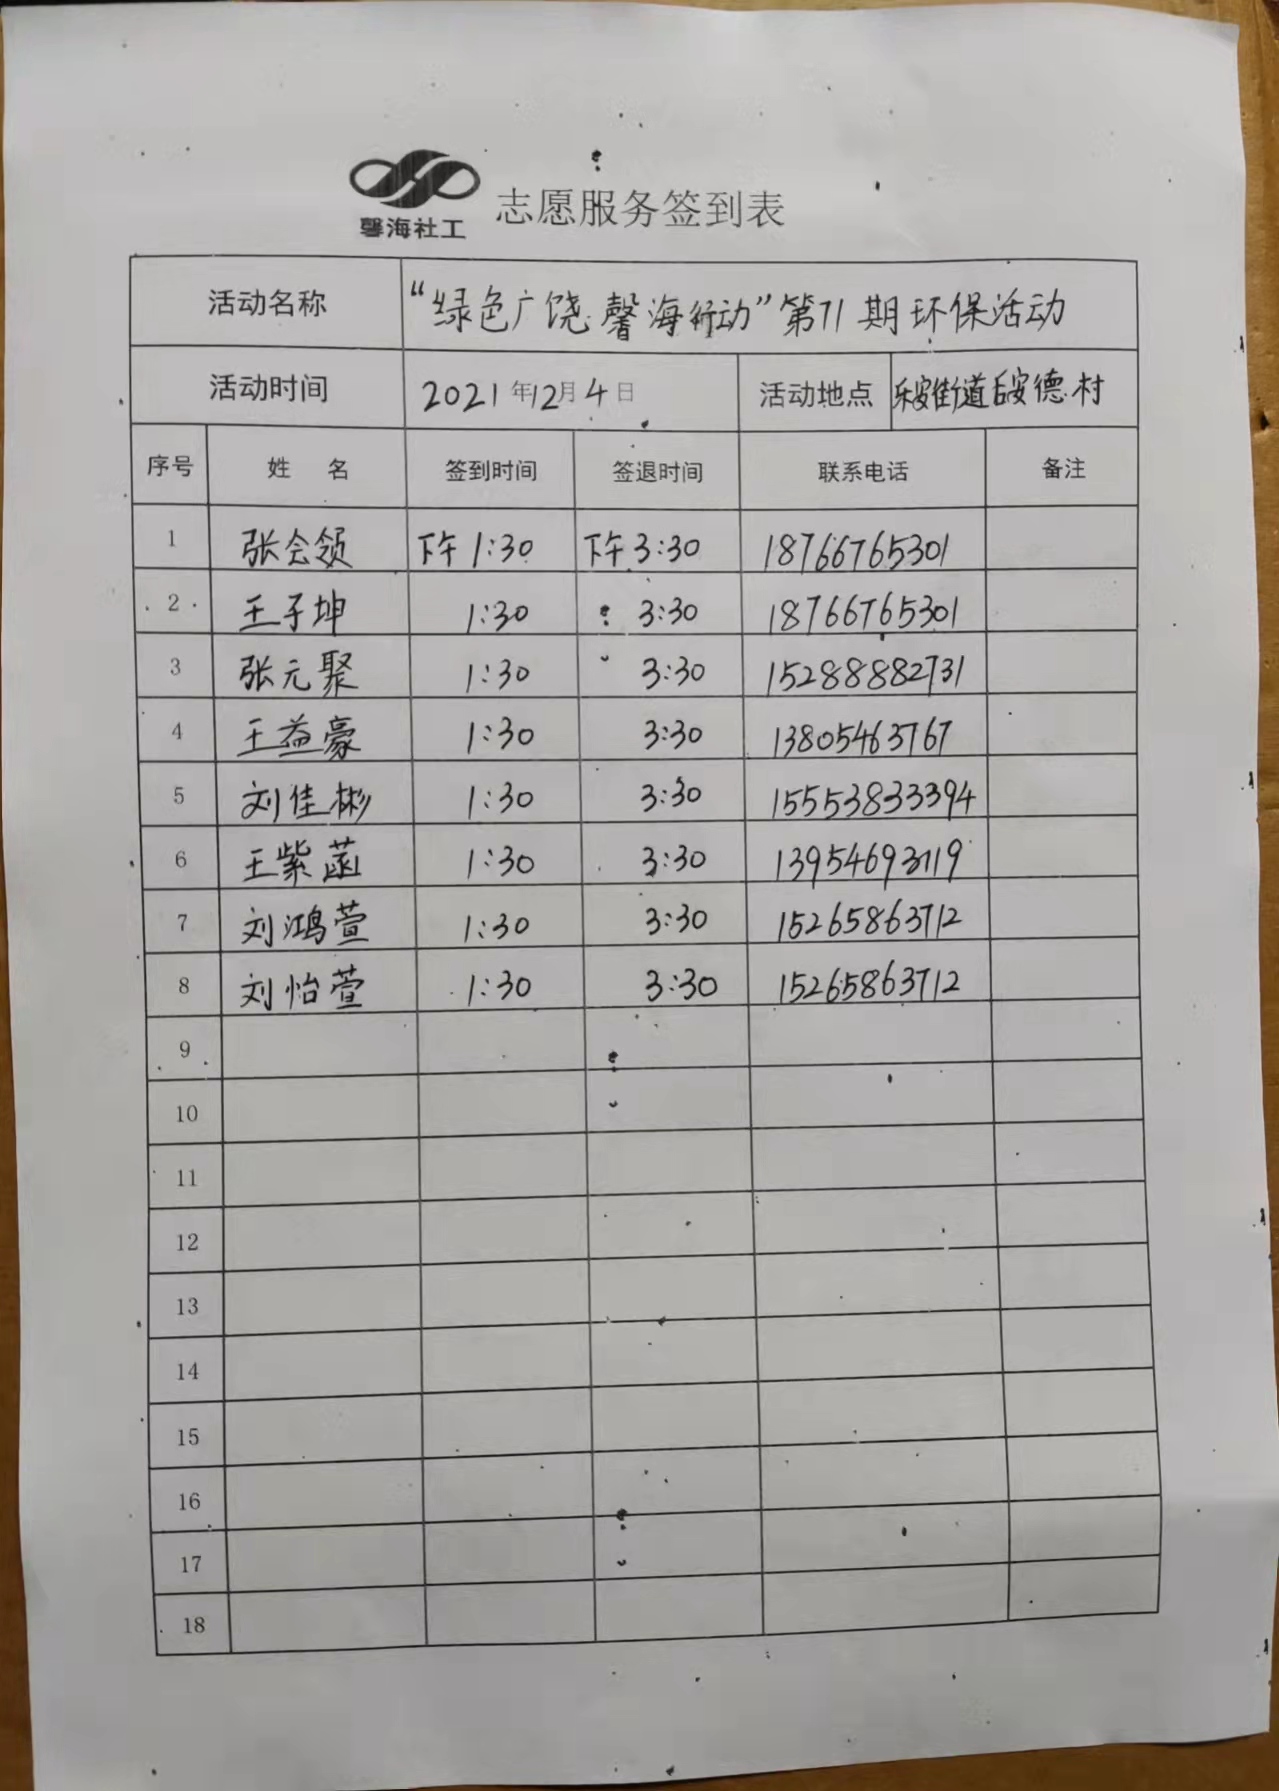 馨海社工
志愿服务签到表
活动名称 “绿色广饶·馨海行动”第71期环保活动
活动时间 2021年12月4日 活动地点 乐安街道后安德村
序号 姓 名 签到时间 签退时间 联系电话 备注
1 张会领 下午1:30 下午3:30 18766765301
2 王子坤 1:30 3:30 18766765301
3 张元聚 1:30 3:30 15288882731
4 王益豪 1:30 3:30 13805463767
5 刘佳彬 1:30 3:30 15553833394
6 王紫菡 1:30 3:30 13954693119
7 刘鸿萱 1:30 3:30 15265863712
8 刘怡萱 1:30 3:30 15265863712
9
10
11
12
13
14
15
16
17
18